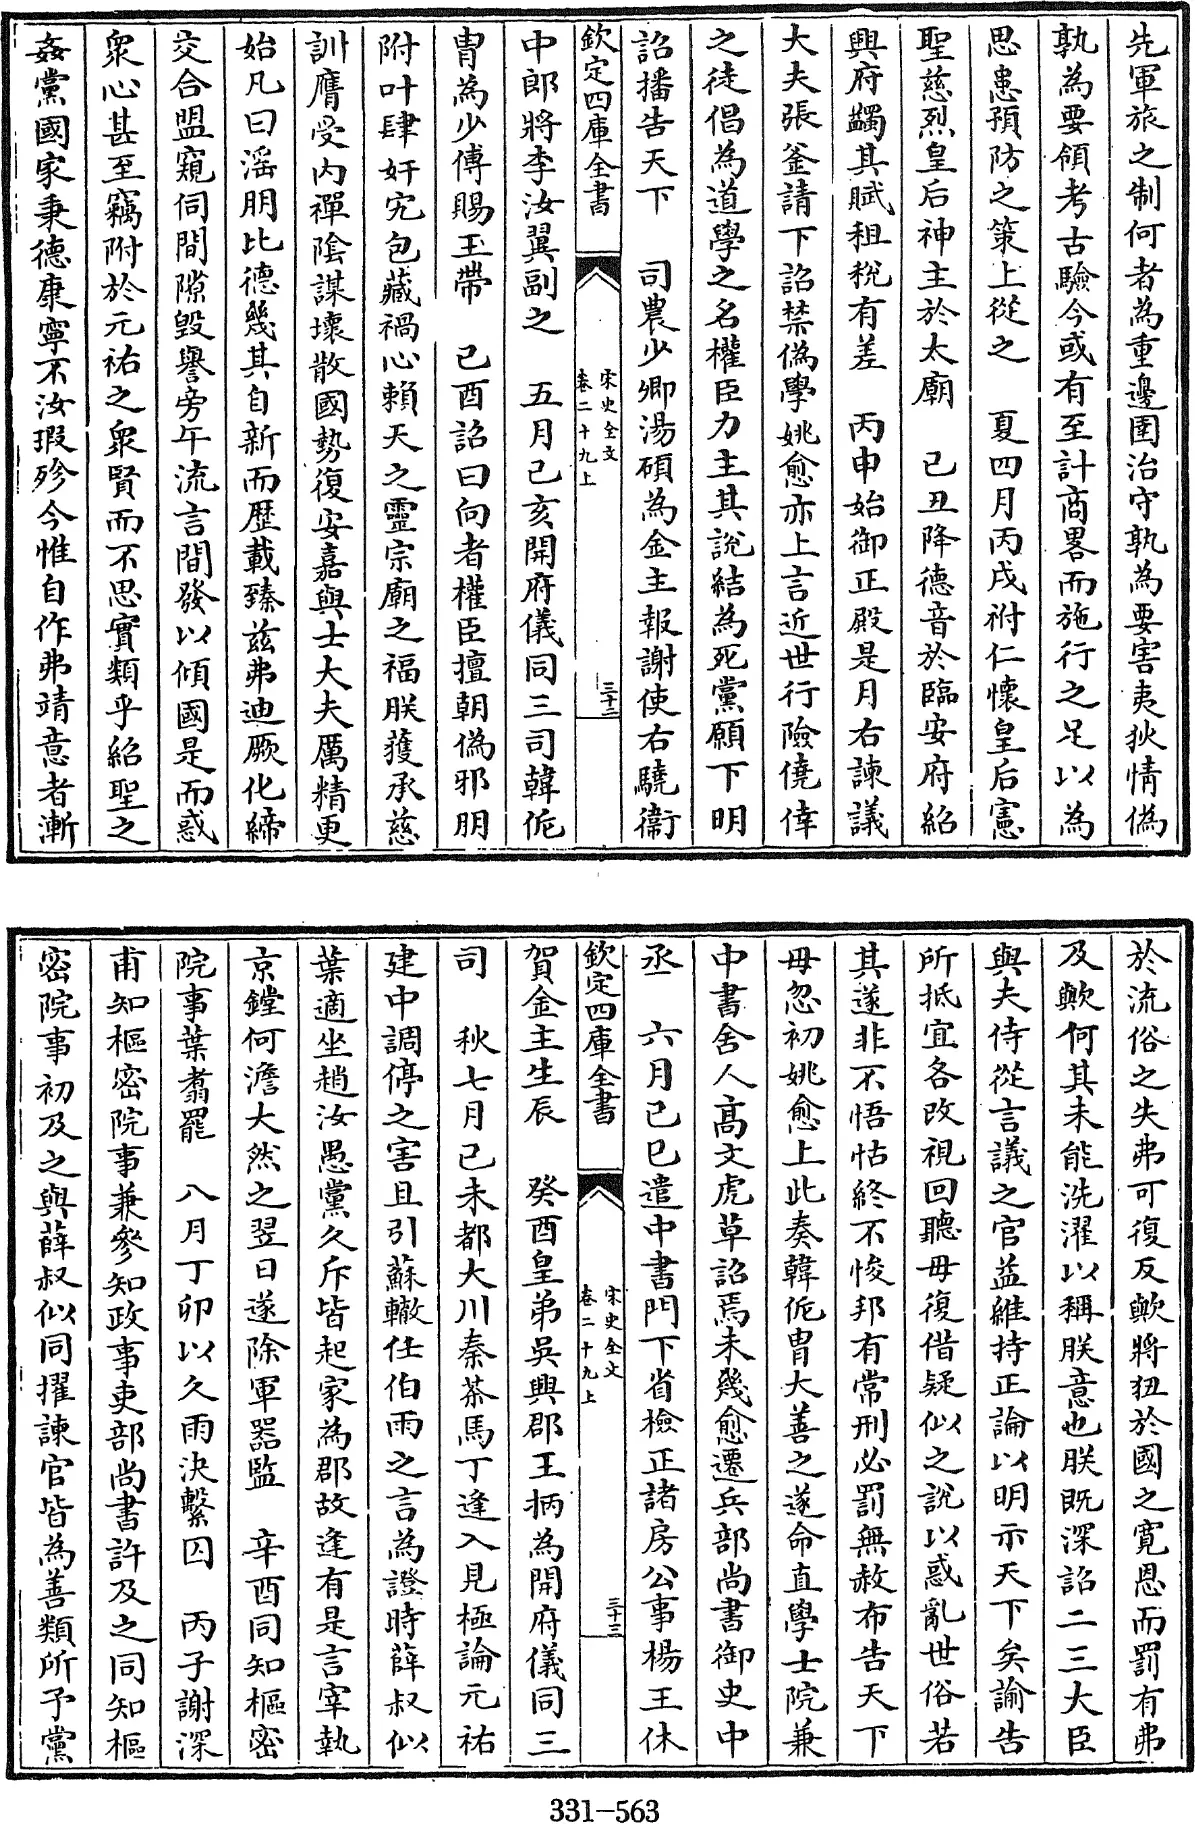 先軍旅之制何者為重邊圉治守孰為要害夷狄情偽
孰為要領考古驗今或有至計商畧而施行之足以為
思患預防之策上從之　夏四月丙戌祔仁懐皇后憲
聖慈烈皇后神主於太廟　己丑降德音於臨安府紹
興府蠲其賦租税有差　丙申始御正殿是月右諫議
大夫張釜請下詔禁偽學姚愈亦上言近世行險僥倖
之徒倡為道學之名權臣力主其説結為死黨願下明
詔播告天下　司農少卿湯碩為金主報謝使右驍衞
欽定四庫全書
宋史全文
卷二十九上
三十二
中郎將李汝翼副之　五月己亥開府儀同三司韓侂
胄為少傅賜玉帶　己酉詔曰向者權臣擅朝偽邪朋
附叶肆奸宄包藏禍心賴天之靈宗廟之福朕獲承慈
訓膺受内禪陰謀壊散國勢復安嘉與士大夫厲精更
始凡曰滛朋比德幾其自新而歴載臻兹弗迪厥化締
交合盟窺伺間隙毀譽旁午流言間發以傾國是而惑
衆心甚至竊附於元祐之衆賢而不思實類乎紹聖之
姦黨國家秉德康寧不汝瑕殄今惟自作弗靖意者漸
於流俗之失弗可復反歟將狃於國之寛恩而罰有弗
及歟何其未能洗濯以稱朕意也朕既深詔二三大臣
與夫侍從言議之官益維持正論以明示天下矣諭告
所抵宜各改視回聽毋復借疑似之説以惑亂世俗若
其遂非不悟怙終不悛邦有常刑必罰無赦布告天下
毋忽初姚愈上此奏韓侂胄大善之遂命直學士院兼
中書舍人髙文虎草詔焉未幾愈遷兵部尚書御史中
丞　六月己巳遣中書門下省檢正諸房公事楊王休
欽定四庫全書
宋史全文
卷二十九上
三十三
賀金主生辰　癸酉皇弟吳興郡王抦為開府儀同三
司　秋七月己未都大川秦茶馬丁逢入見極論元祐
建中調停之害且引蘇轍任伯雨之言為證時薛叔似
葉適坐趙汝愚黨久斥皆起家為郡故逢有是言宰執
京鏜何澹大然之翌日遂除軍器監　辛酉同知樞密
院事葉翥罷　八月丁卯以久雨決繫囚　丙子謝深
甫知樞密院事兼參知政事吏部尚書許及之同知樞
密院事初及之與薛叔似同擢諫官皆為善類所予黨
331-563